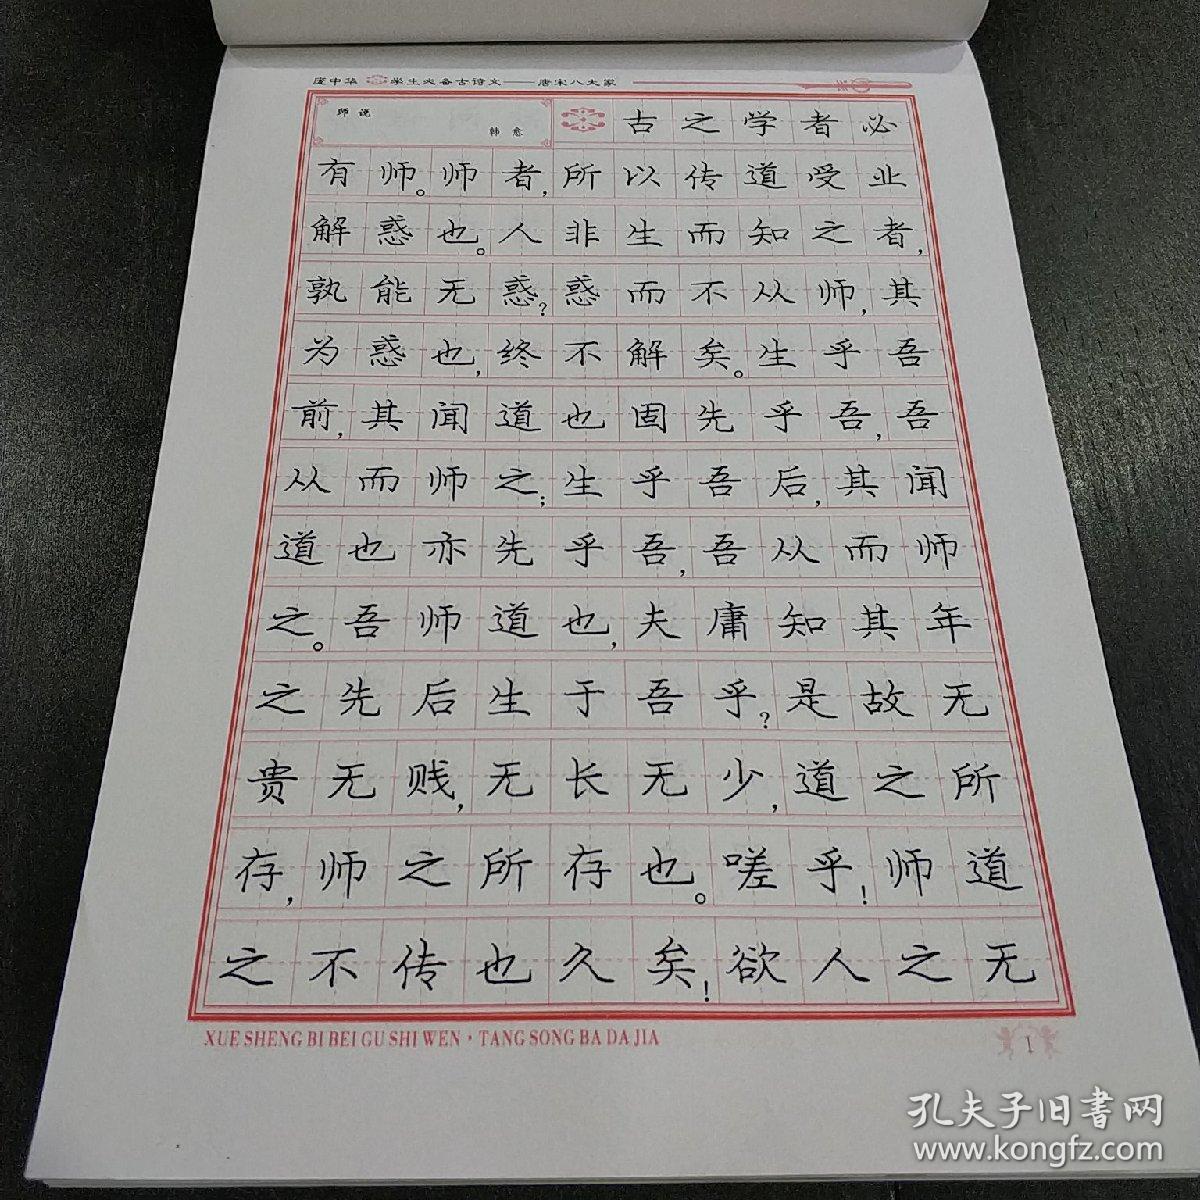 庞中华 学生必备古诗文——唐宋八大家
师说
韩愈
古之学者必
有师。师者,所以传道受业
解惑也。人非生而知之者,
孰能无惑?惑而不从师,其
为惑也,终不解矣。生乎吾
前,其闻道也固先乎吾,吾
从而师之;生乎吾后,其闻
道也亦先乎吾,吾从而师
之。吾师道也,夫庸知其年
之先后生于吾乎?是故无
贵无贱,无长无少,道之所
存,师之所存也。嗟乎!师道
之不传也久矣!欲人之无
XUE SHENG BI BEI GU SHI WEN · TANG SONG BA DA JIA
1
孔夫子旧书网
www.kongfz.com